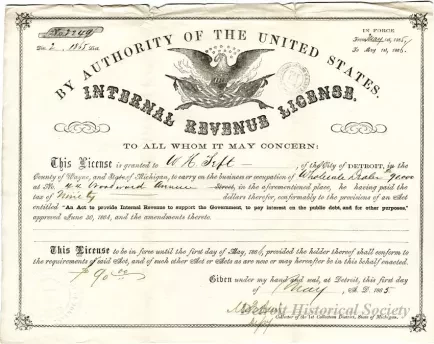 No. 2249
Div. 2, 1865 Dist.
IN FORCE
From May 1st, 1865,
To May 1st, 1866.
BY AUTHORITY OF THE UNITED STATES.
INTERNAL REVENUE LICENSE.
TO ALL WHOM IT MAY CONCERN:
This License is granted to W. H. Tefft — , of the City of DETROIT, in the
County of Wayne, and State of Michigan, to carry on the business or occupation of Wholesale Dealer
at No. 44 Woodward Avenue Street, in the aforementioned place, he having paid the
tax of Ninety dollars therefor, conformably to the provisions of an Act
entitled "An Act to provide Internal Revenue to support the Government, to pay interest on the public debt, and for other purposes,"
approved June 30, 1864, and the amendments thereto.
This License to be in force until the first day of May, 1866, provided the holder thereof shall conform to
the requirements of said Act, and of such other Act or Acts as are now or may hereafter be in this behalf enacted.
$90 00
Given under my hand and seal, at Detroit, this first day
of May, A. D. 1865
Historical Society
Collector of the 1st Collection District, State of Michigan.